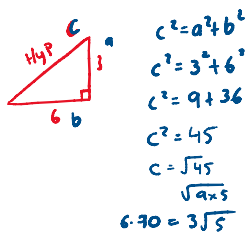 C
a
Hyp
3
6
b
c² = a² + b²
c² = 3² + 6²
c² = 9 + 36
c² = 45
c = √45
√9×5
6.70 = 3√5